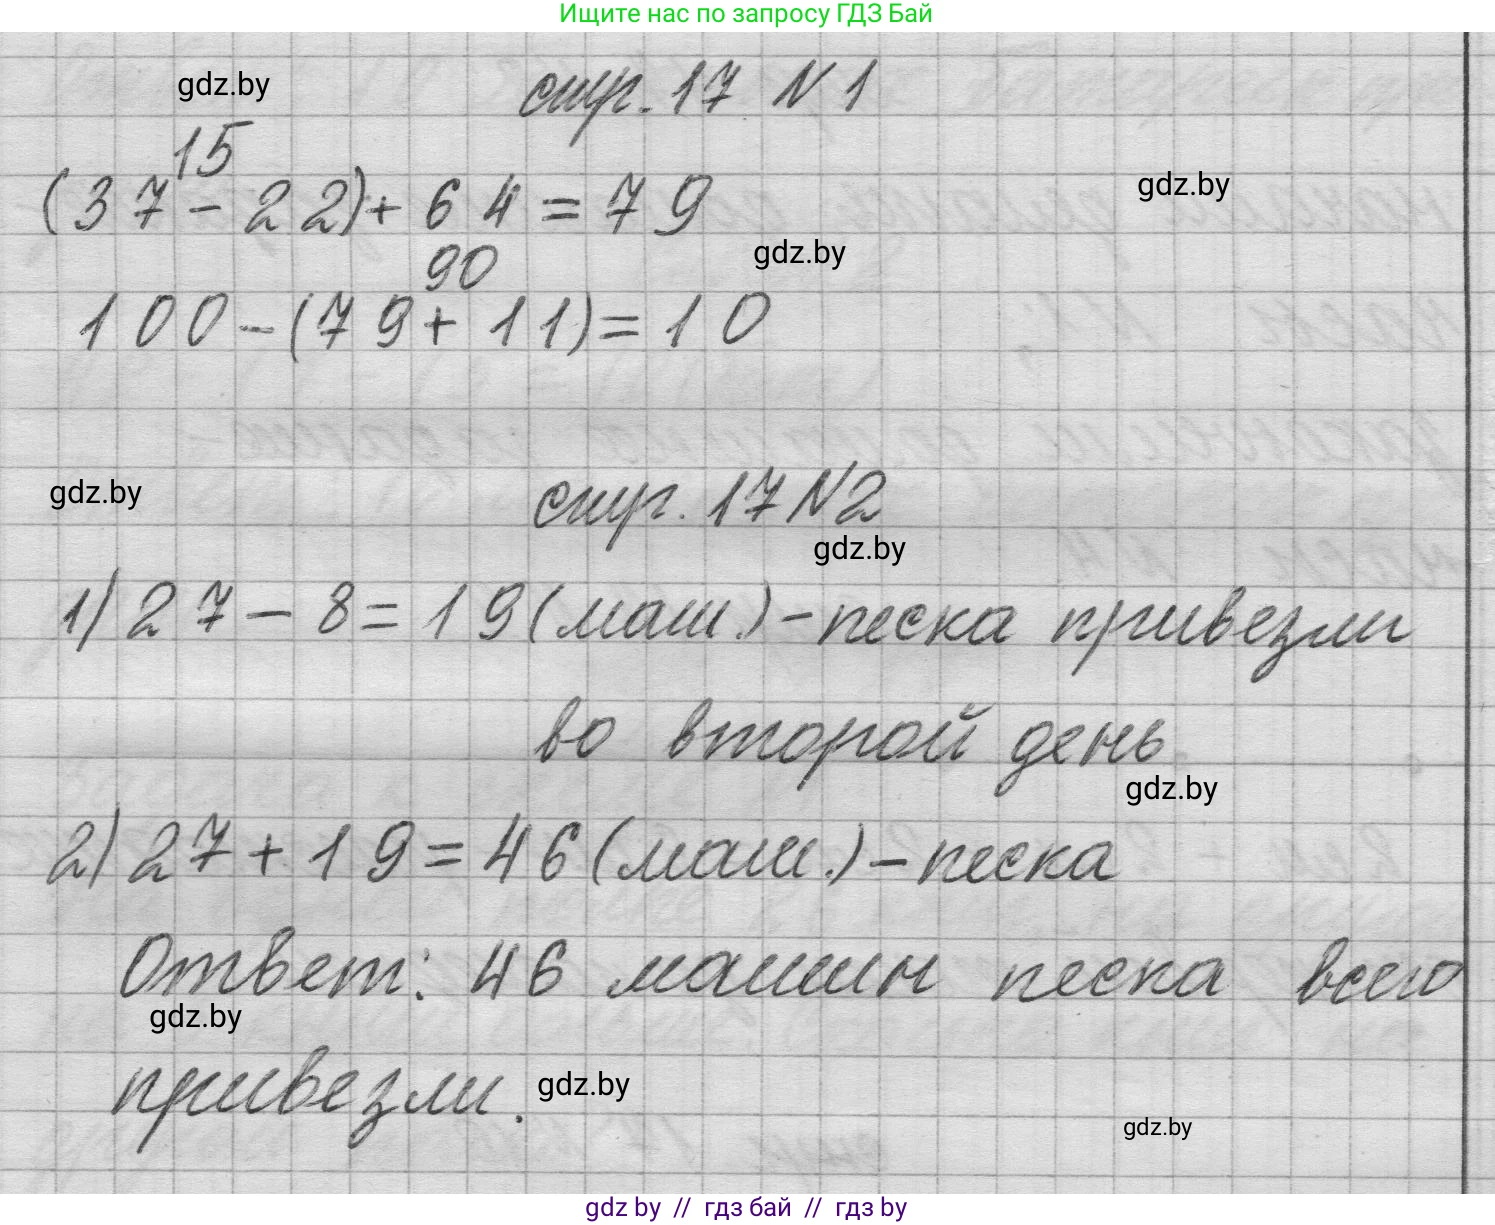 Ищите нас по запросу ГДЗ Бай
gdz.by
стр. 17 N 1
15
(37-22)+64=79
gdz.by
gdz.by
90
100-(79+11)=10
стр. 17 N2
gdz.by
gdz.by
1) 27-8=19(маш.)-песка привезли
во второй день.
gdz.by
2) 27+19=46(маш.)-песка
Ответ: 46 машин песка всего
gdz.by
привезли.
gdz.by
gdz.by
gdz.by // гдз бай // гдз by